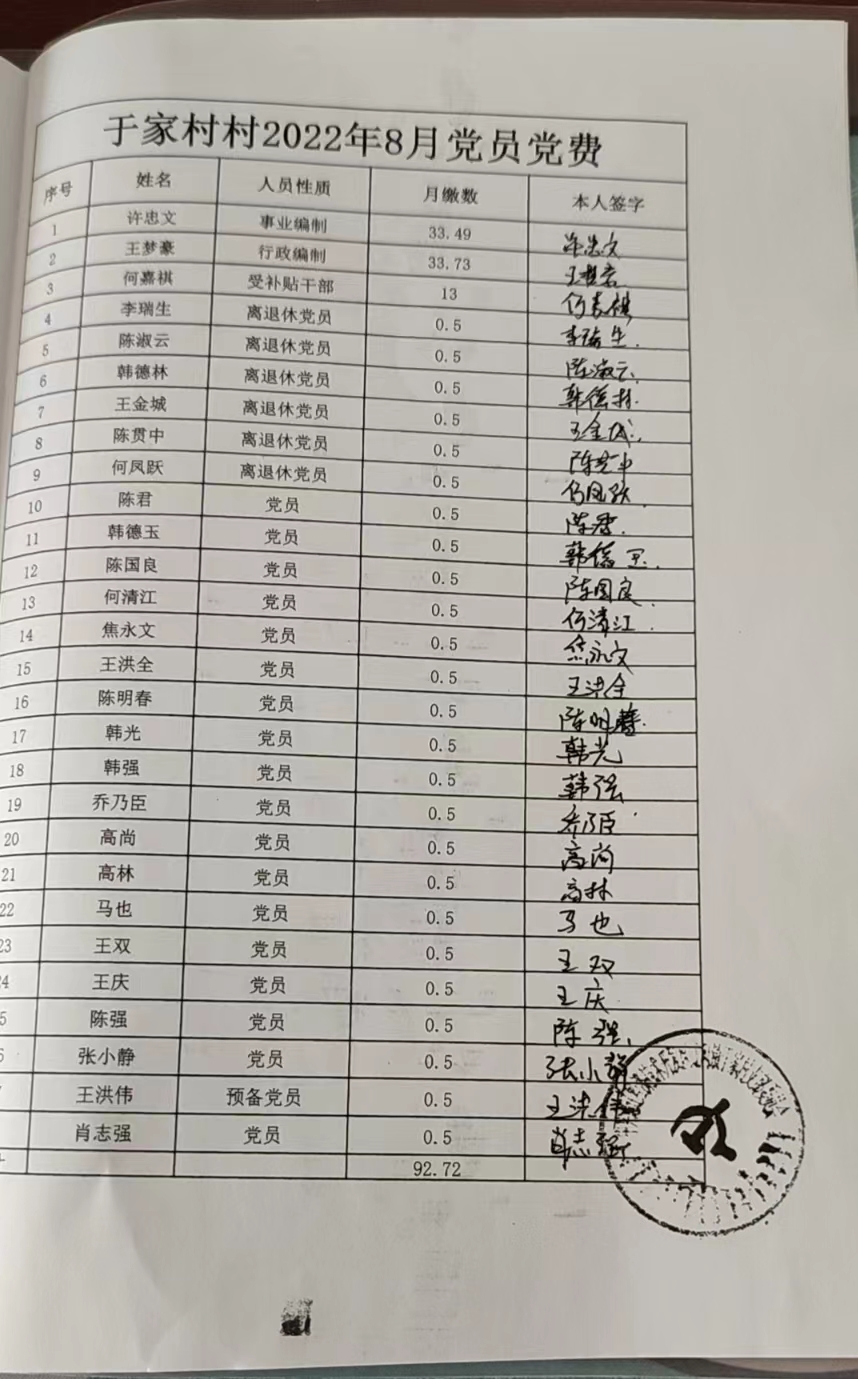 于家村村2022年8月党员党费
序号 姓名 人员性质 月缴数 本人签字
1 许忠文 事业编制 33.49 许忠文
2 王梦豪 行政编制 33.73 王梦豪
3 何嘉祺 受补贴干部 13 何嘉祺
4 李瑞生 离退休党员 0.5 李瑞生.
5 陈淑云 离退休党员 0.5 陈淑云.
6 韩德林 离退休党员 0.5 韩德林.
7 王金城 离退休党员 0.5 王金城.
8 陈贯中 离退休党员 0.5 陈贯中
9 何凤跃 离退休党员 0.5 何凤跃
10 陈君 党员 0.5 陈君.
11 韩德玉 党员 0.5 韩德玉.
12 陈国良 党员 0.5 陈国良.
13 何清江 党员 0.5 何清江.
14 焦永文 党员 0.5 焦永文
15 王洪全 党员 0.5 王洪全
16 陈明春 党员 0.5 陈明春.
17 韩光 党员 0.5 韩光
18 韩强 党员 0.5 韩强
19 乔乃臣 党员 0.5 乔乃臣
20 高尚 党员 0.5 高尚
21 高林 党员 0.5 高林
22 马也 党员 0.5 马也
23 王双 党员 0.5 王双
24 王庆 党员 0.5 王庆
5 陈强 党员 0.5 陈强.
张小静 党员 0.5 张小静
王洪伟 预备党员 0.5 王洪伟
肖志强 党员 0.5 肖志强
92.72